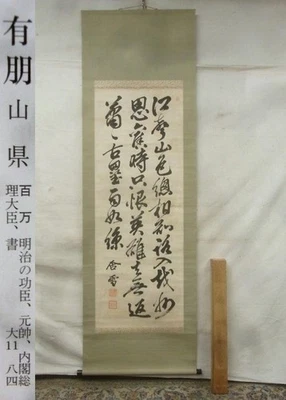 有朋 山県 百万 明治の功臣、元帥、内閣総
理大臣、書 大11 八四
江聲山色總相知話入戎
思舊時只恨英雄去無返
古壘雨如絲 含雪